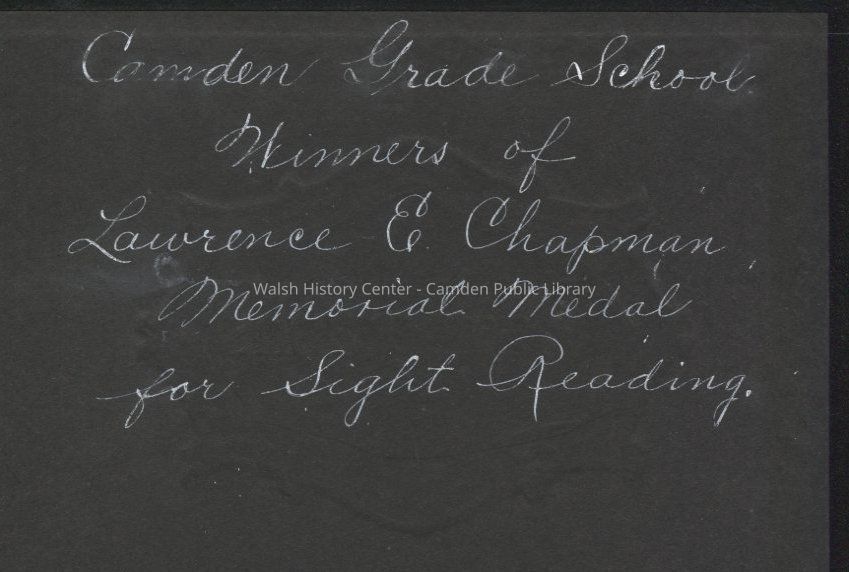 Camden Grade School.
Winners of
Lawrence E. Chapman
Walsh History Center - Camden Public Library
Memorial Medal
for Sight Reading.